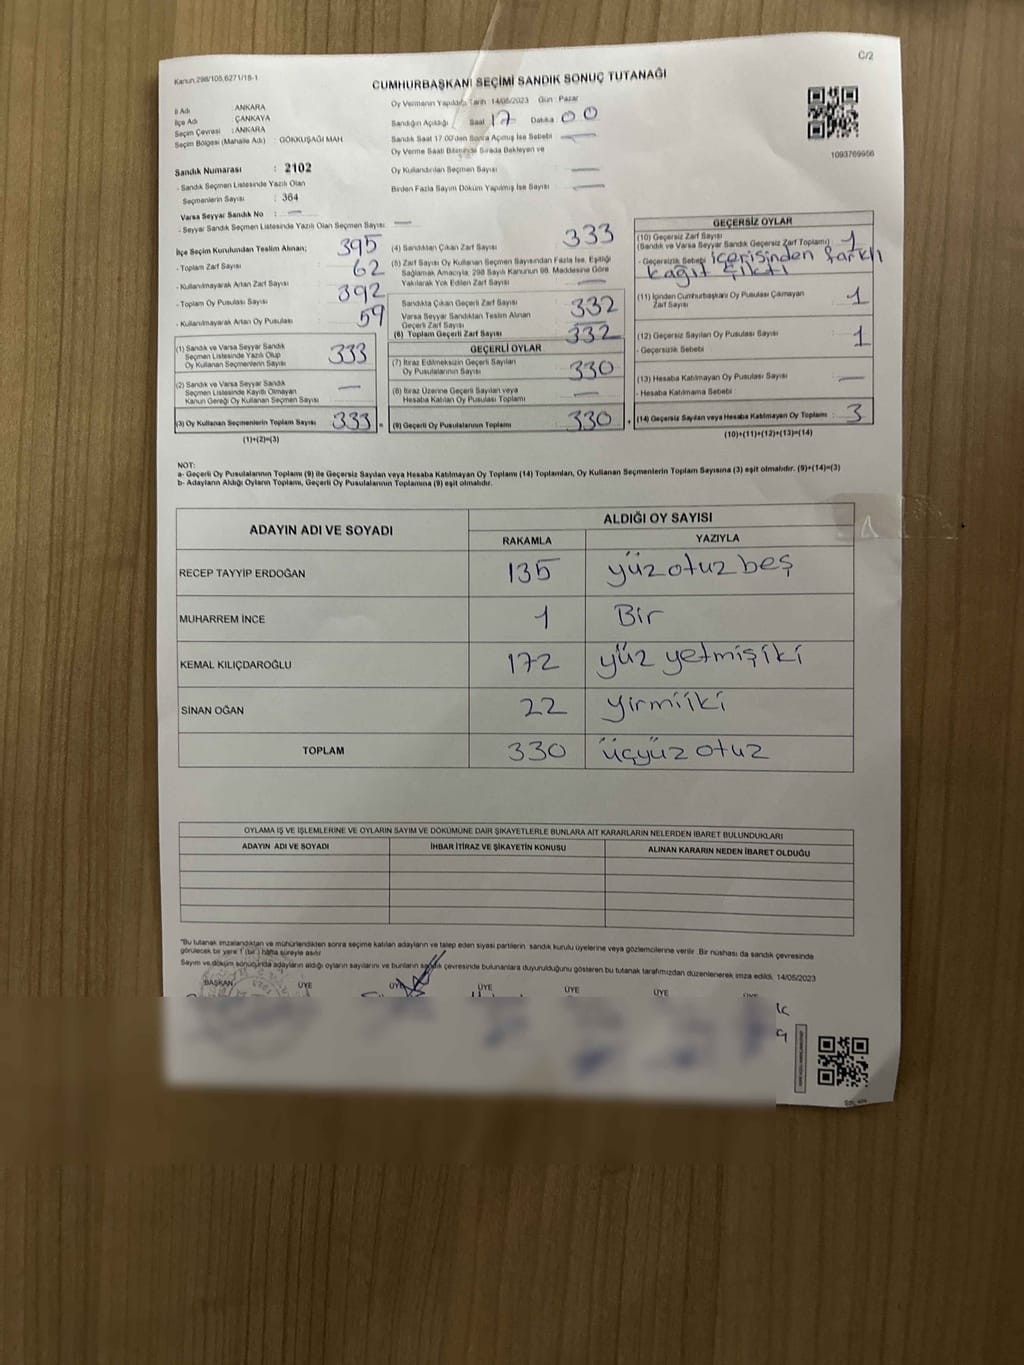 C/2
Kanun.298/105,6271/18-1
CUMHURBAŞKANI SEÇİMİ SANDIK SONUÇ TUTANAĞI
İl Adı : ANKARA
İlçe Adı : ÇANKAYA
Seçim Çevresi : ANKARA
Seçim Bölgesi (Mahalle Adı) : GÖKKUŞAĞI MAH
Oy Vermenin Yapıldığı Tarih : 14/05/2023 Gün : Pazar
Sandığın Açıldığı Saat 17 Dakika 00
Sandık Saat 17.00'den Sonra Açılmış İse Sebebi —
Oy Verme Saati Bitiminde Sırada Bekleyen ve
Oy Kullandırılan Seçmen Sayısı —
Birden Fazla Sayım Döküm Yapılmış İse Sayısı —
1093769956
Sandık Numarası : 2102
- Sandık Seçmen Listesinde Yazılı Olan
Seçmenlerin Sayısı : 364
Varsa Seyyar Sandık No : —
- Seyyar Sandık Seçmen Listesinde Yazılı Olan Seçmen Sayısı: —
İlçe Seçim Kurulundan Teslim Alınan;
- Toplam Zarf Sayısı 395
- Kullanılmayarak Artan Zarf Sayısı 62
- Toplam Oy Pusulası Sayısı 392
- Kullanılmayarak Artan Oy Pusulası 59
(1) Sandık ve Varsa Seyyar Sandık
Seçmen Listesinde Yazılı Olup
Oy Kullanan Seçmenlerin Sayısı 333
(2) Sandık ve Varsa Seyyar Sandık
Seçmen Listesinde Kayıtlı Olmayan
Kanun Gereği Oy Kullanan Seçmen Sayısı —
(3) Oy Kullanan Seçmenlerin Toplam Sayısı 333 =
(1)+(2)=(3)
(4) Sandıktan Çıkan Zarf Sayısı 333
(5) Zarf Sayısı Oy Kullanan Seçmen Sayısından Fazla İse, Eşitliği
Sağlamak Amacıyla, 298 Sayılı Kanunun 98. Maddesine Göre
Yakılarak Yok Edilen Zarf Sayısı —
Sandıkta Çıkan Geçerli Zarf Sayısı 332
Varsa Seyyar Sandıktan Teslim Alınan
Geçerli Zarf Sayısı —
(6) Toplam Geçerli Zarf Sayısı 332
GEÇERLİ OYLAR
(7) İtiraz Edilmeksizin Geçerli Sayılan
Oy Pusulalarının Sayısı 330
(8) İtiraz Üzerine Geçerli Sayılan veya
Hesaba Katılan Oy Pusulası Toplamı —
(9) Geçerli Oy Pusulalarının Toplamı 330 +
GEÇERSİZ OYLAR
(10) Geçersiz Zarf Sayısı
(Sandık ve Varsa Seyyar Sandık Geçersiz Zarf Toplamı) 1
- Geçersizlik Sebebi içerisinden farklı
kağıt çıktı
(11) İçinden Cumhurbaşkanı Oy Pusulası Çıkmayan
Zarf Sayısı 1
(12) Geçersiz Sayılan Oy Pusulası Sayısı 1
- Geçersizlik Sebebi
(13) Hesaba Katılmayan Oy Pusulası Sayısı —
- Hesaba Katılmama Sebebi
(14) Geçersiz Sayılan veya Hesaba Katılmayan Oy Toplamı : 3
(10)+(11)+(12)+(13)=(14)
NOT:
a- Geçerli Oy Pusulalarının Toplamı (9) ile Geçersiz Sayılan veya Hesaba Katılmayan Oy Toplamı (14) Toplamları, Oy Kullanan Seçmenlerin Toplam Sayısına (3) eşit olmalıdır. (9)+(14)=(3)
b- Adayların Aldığı Oyların Toplamı, Geçerli Oy Pusulalarının Toplamına (9) eşit olmalıdır.
ADAYIN ADI VE SOYADI
ALDIĞI OY SAYISI
RAKAMLA YAZIYLA
RECEP TAYYİP ERDOĞAN 135 yüzotuzbeş
MUHARREM İNCE 1 Bir
KEMAL KILIÇDAROĞLU 172 yüz yetmişiki
SİNAN OĞAN 22 yirmiiki
TOPLAM 330 üçyüz otuz
OYLAMA İŞ VE İŞLEMLERİNE VE OYLARIN SAYIM VE DÖKÜMÜNE DAİR ŞİKAYETLERLE BUNLARA AİT KARARLARIN NELERDEN İBARET BULUNDUKLARI
ADAYIN ADI VE SOYADI İHBAR İTİRAZ VE ŞİKAYETİN KONUSU ALINAN KARARIN NEDEN İBARET OLDUĞU
"Bu tutanak imzalandıktan ve mühürlendikten sonra seçime katılan adayların ve talep eden siyasi partilerin sandık kurulu üyelerine veya gözlemcilerine verilir. Bir nüshası da sandık çevresinde
görülecek bir yere 1 (bir ) hafta süreyle asılır
Sayım ve döküm sonucunda adayların aldığı oyların sayılarını ve bunların sandık çevresinde bulunanlara duyurulduğunu gösteren bu tutanak tarafımızdan düzenlenerek imza edildi. 14/05/2023
BAŞKAN ÜYE ÜYE ÜYE ÜYE ÜYE ÜYE